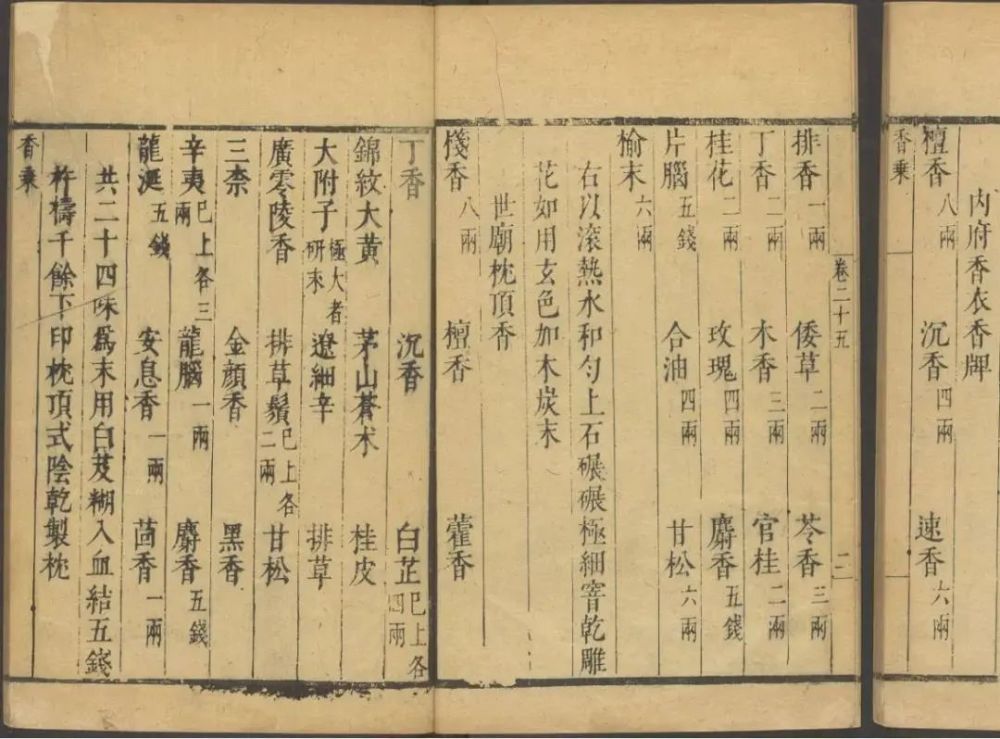 內府香衣香牌
檀香 八兩 沉香 四兩 速香 六兩
香乘
卷二十五
二
排香 一兩 倭草 二兩 苓香 三兩
丁香 二兩 木香 三兩 官桂 二兩
桂花 二兩 玫瑰 四兩 麝香 五錢
片腦 五錢 合油 四兩 甘松 六兩
榆末 六兩
右以滾熱水和勻上石碾碾極細窨乾雕
花如用玄色加木炭末
世廟枕頂香
棧香 八兩 檀香 藿香
丁香 沉香 白芷 已上各四兩
錦紋大黃 茅山蒼朮 桂皮
大附子 極大者研末 遼細辛 排草
廣零陵香 排草鬚 已上各二兩 甘松
三柰 金顏香 黑香
辛夷 已上各三兩 龍腦 一兩 麝香 五錢
龍涎 五錢 安息香 一兩 茴香 一兩
共二十四味爲末用白芨糊入血結五錢
杵擣千餘下印枕頂式陰乾製枕
香乘